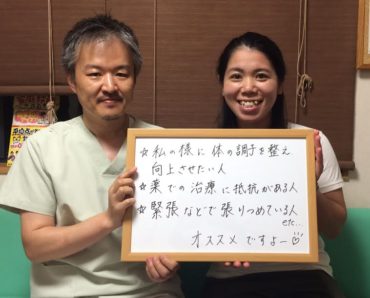 ☆私の様に体の調子を整え
向上させたい人
☆薬での治療に抵抗がある人
☆緊張などで張りつめている人
etc...
オススメですよー♡